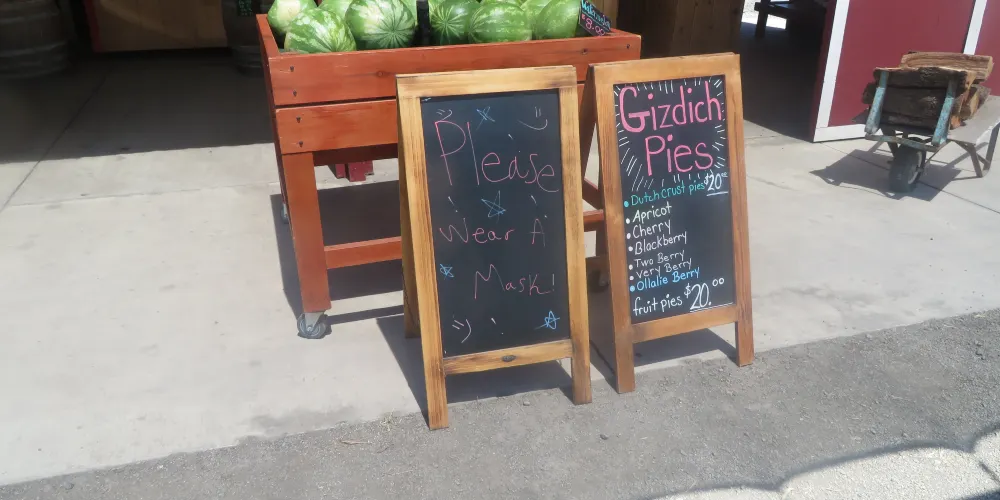 Please
Wear A
Mask!
Gizdich
Pies
Dutch crust pies $20⁰⁰
Apricot
Cherry
Blackberry
Two Berry
Very Berry
Ollalie Berry
fruit pies $20.⁰⁰